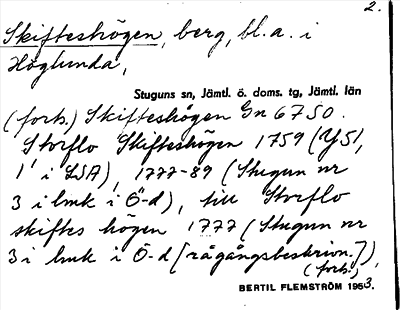 2.
Skifteshögen, berg, bl.a. i
Höglunda,
Stuguns sn, Jämtl. ö. doms. tg, Jämtl. län
(forts.) Skifteshögen Gn 6750.
Storflo Skifteshögen 1759 (Y51,
1 i LSA), 1777-89 (Stugun nr
3 i lmk i Ö-d), till Storflo
skiftes högen 1777 (Stugun nr
3 i lmk i Ö-d [rågångsbeskrivn.]),
(forts.)
BERTIL FLEMSTRÖM 1963.